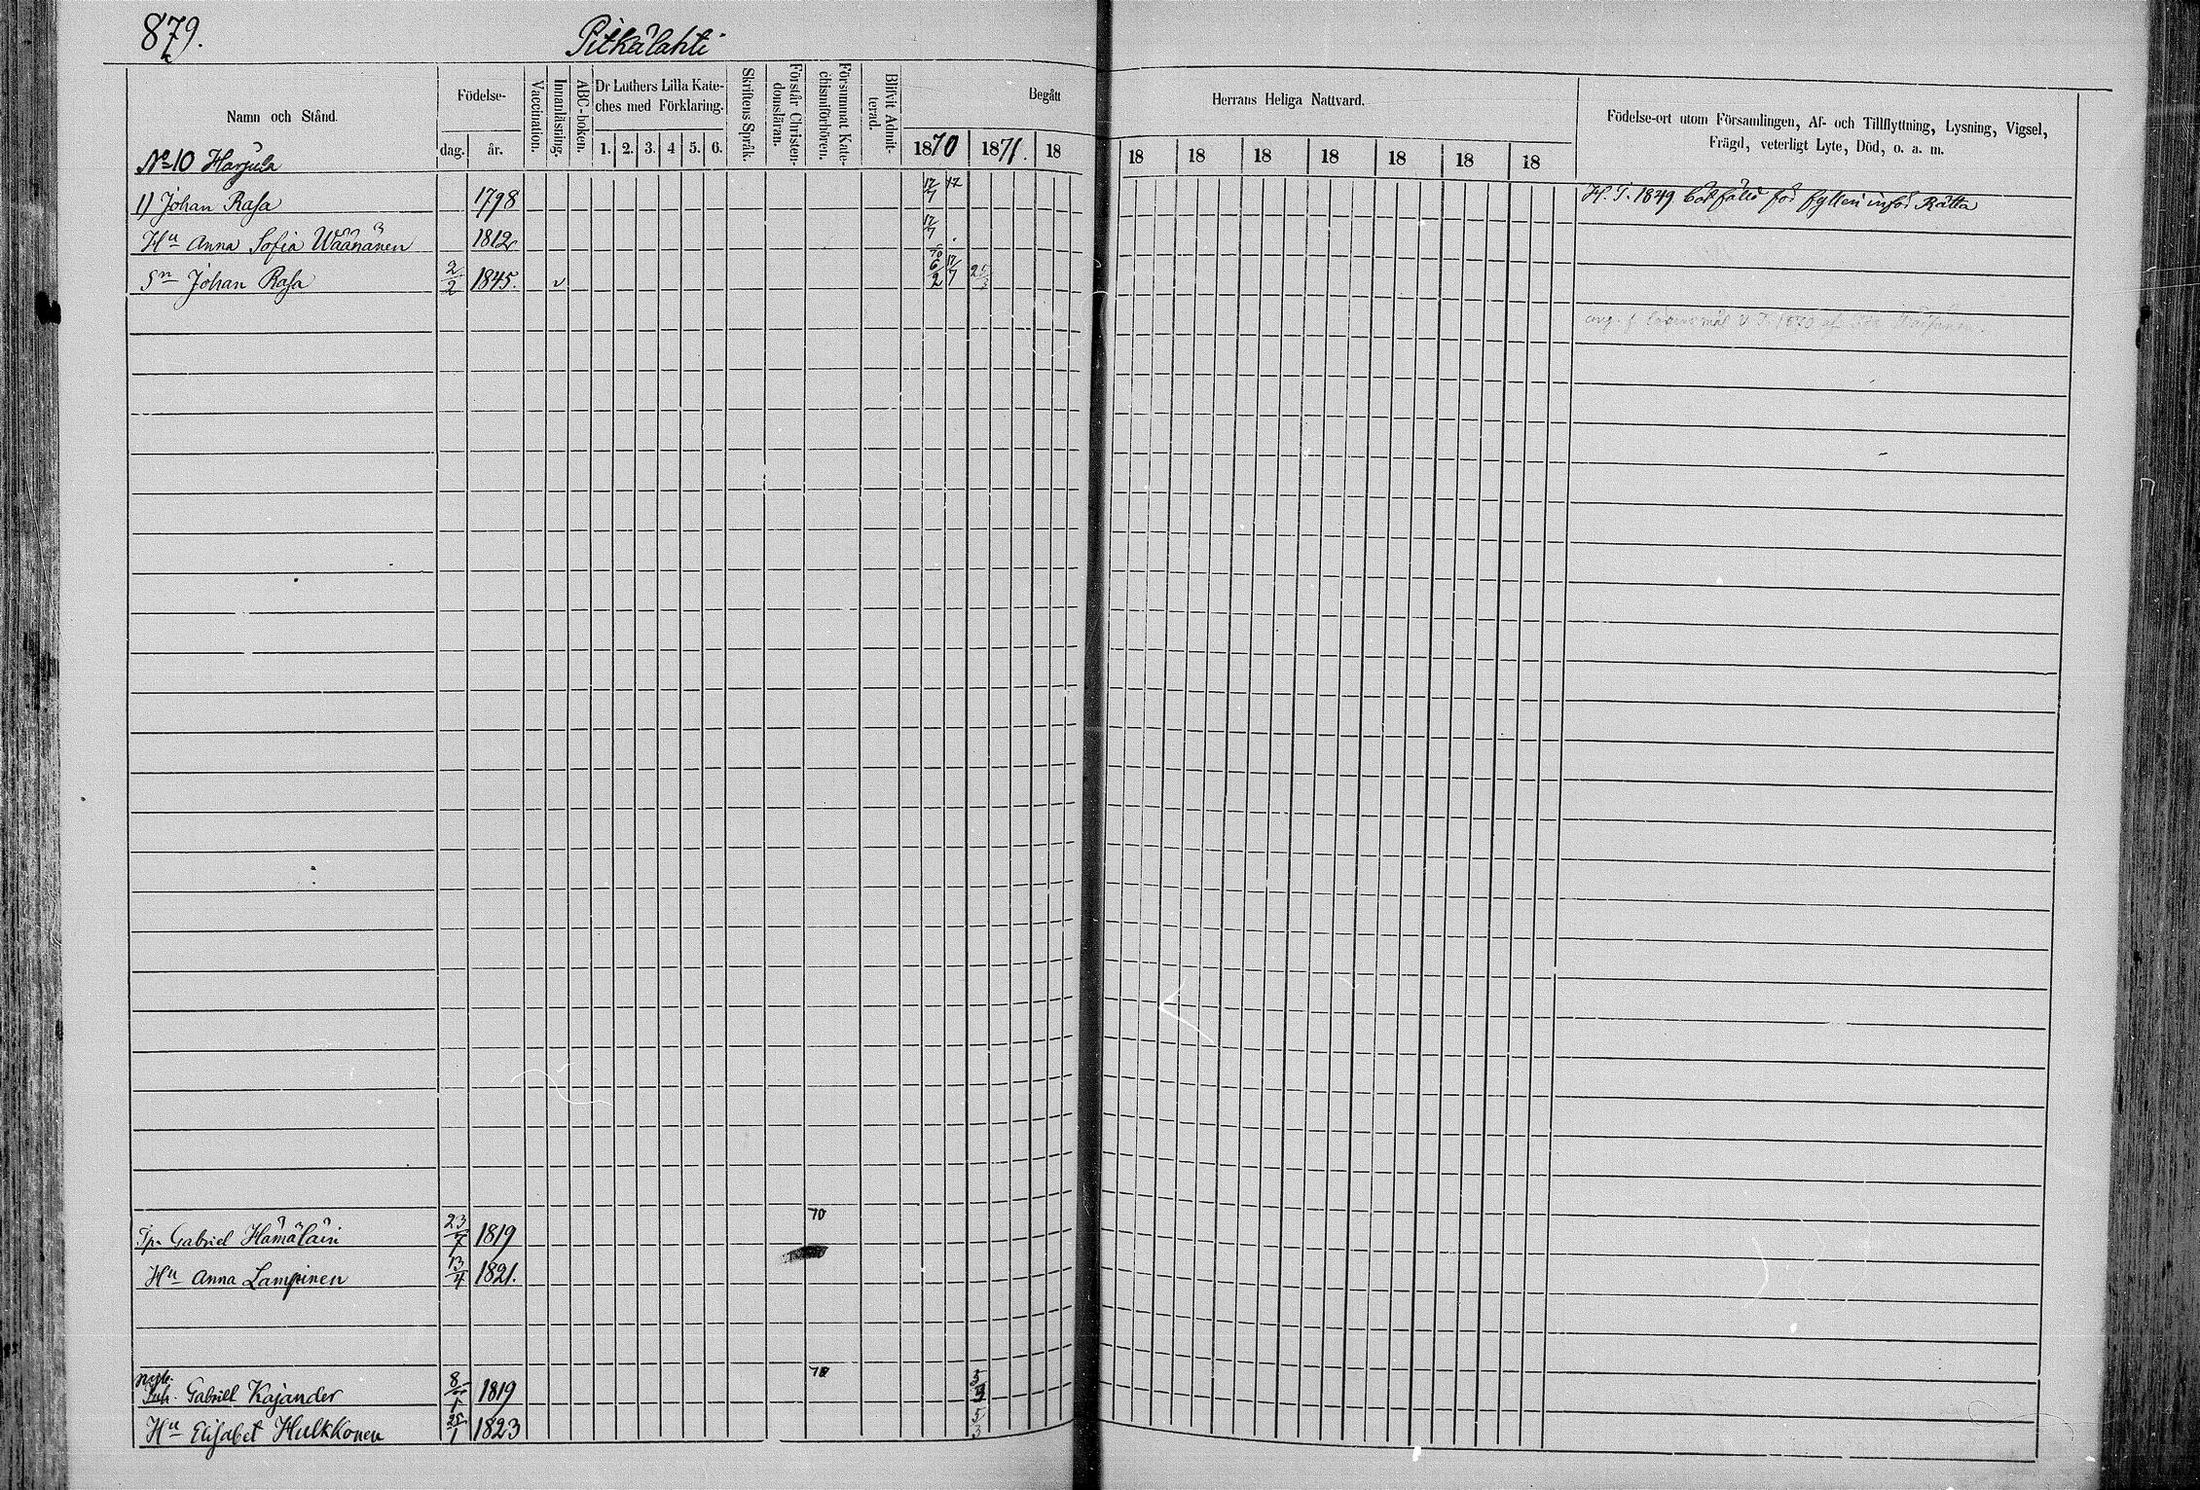 879.
Pitkälahti
Namn och Stånd.
Födelse-
dag. år.
Vaccination.
Innanläsning.
ABC-boken.
Dr Luthers Lilla Kate-
ches med Förklaring.
1. 2. 3. 4 5. 6.
Skriftens Språk.
Förstår Christen-
domsläran.
Försummat Kate-
chismiförhören.
Blifvit Admit-
terad.
Begått Herrans Heliga Nattvard.
1870 1871. 18 18 18 18 18 18 18 18
Födelse-ort utom Församlingen, Af- och Tillflyttning, Lysning, Vigsel,
Frägd, veterligt Lyte, Död, o. a. m.
No 10 Harjula
1) Johan Rasa 1798 17/7 H. T. 1849 botfälld för fylleri inför Rätta
Hu Anna Sofia Wäänänen 1812 17/7
Sn Johan Rasa 2/2 1845. v 6/2 17/7
Gabriel Hämäläin 23/7 1819 70
Hu Anna Lampinen 13/4 1821.
Gabriell Kajander 1819 70
Hu Elisabet Hulkkonen 25/1 1823 5/3